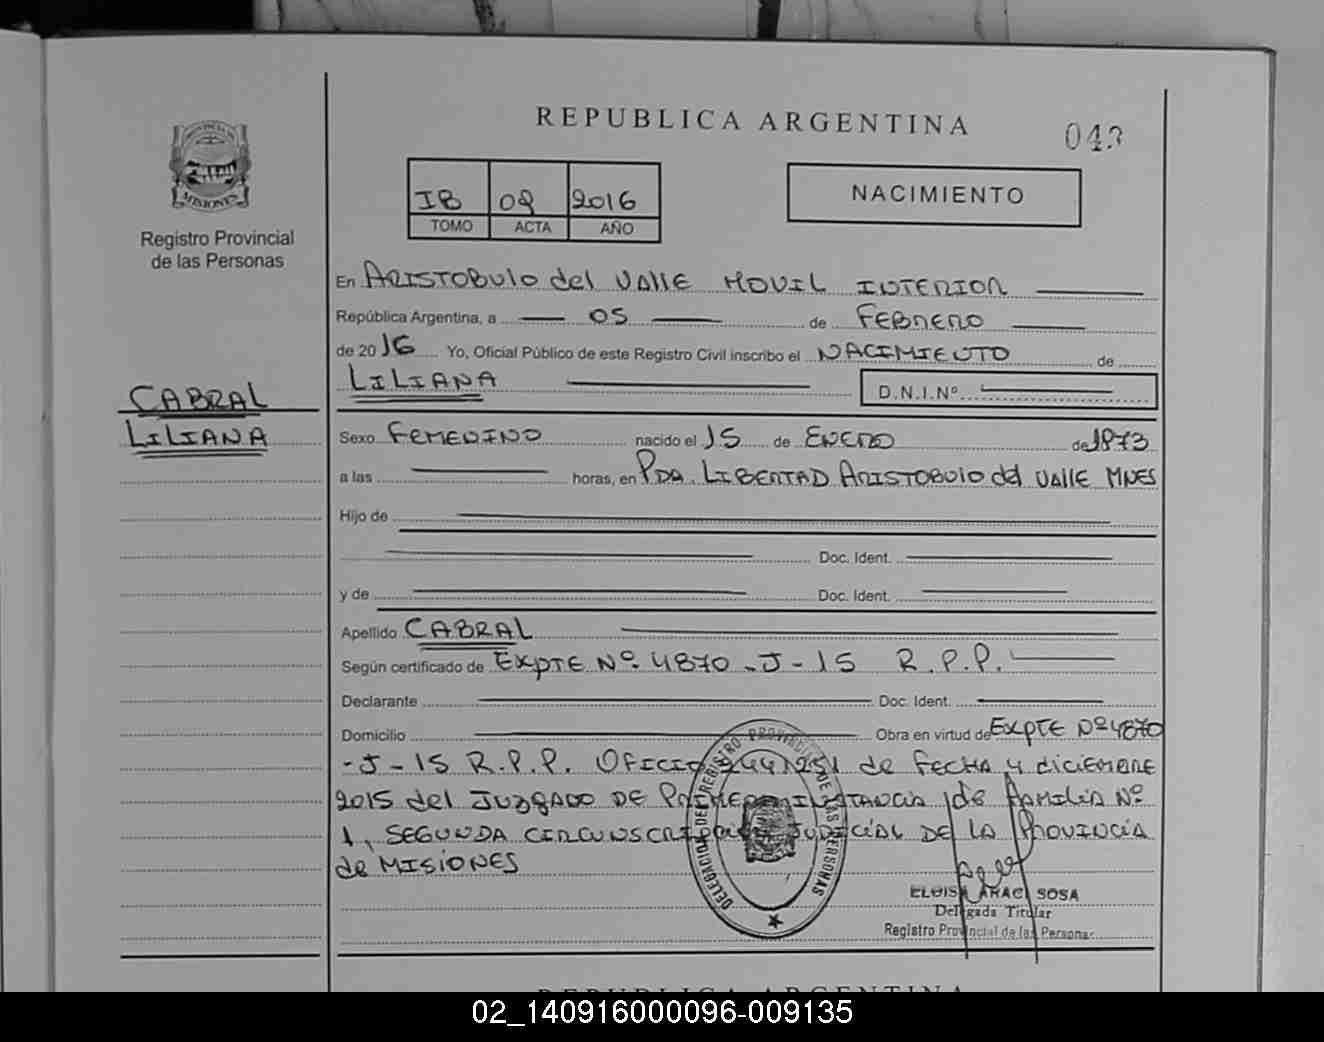 REPUBLICA ARGENTINA
043
PROVINCIA DE
MISIONES
Registro Provincial
de las Personas
IB 02 2016
TOMO ACTA AÑO
NACIMIENTO
En ARISTOBULO del VALLE MOVIL INTERIOR
República Argentina, a 05 de FEBRERO
de 2016 Yo, Oficial Público de este Registro Civil inscribo el NACIMIENTO de
LILIANA D.N.I.Nº
CABRAL
LILIANA
Sexo FEMENINO nacido el 15 de ENERO de 1973
a las horas, en PDA. LIBERTAD ARISTOBULO del VALLE MNES
Hijo de
Doc. Ident.
y de Doc. Ident.
Apellido CABRAL
Según certificado de EXPTE Nº 4870 - J - 15 R.P.P.
Declarante Doc. Ident.
Domicilio Obra en virtud de EXPTE Nº 4870
- J - 15 R.P.P. OFICIO de FECHA 4 diCIEMBRE
2015 del JUZGADO DE PRIMERA INSTANCIA de FAMILIA Nº
1, SEGUNDA CIRCUNSCRIPCION JUDICIAL DE LA PROVINCIA
de MISIONES
DELEGACION DEL REGISTRO PROVINCIAL DE LAS PERSONAS
SOSA
Delegada Titular
Registro Provincial de las Personas
REPUBLICA ARGENTINA
02_140916000096-009135